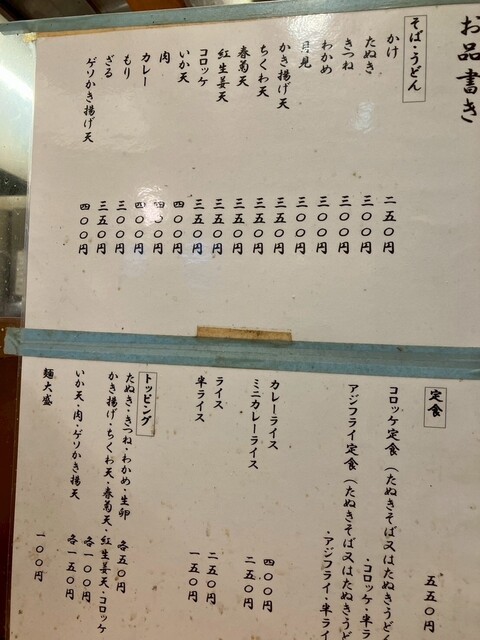 お品書き
そば・うどん
かけ 二五〇円
たぬき 三〇〇円
きつね 三〇〇円
わかめ 三〇〇円
月見 三〇〇円
かき揚げ天 三五〇円
ちくわ天 三五〇円
春菊天 三五〇円
紅生姜天 三五〇円
コロッケ 三五〇円
いか天 四〇〇円
肉 四〇〇円
カレー 四〇〇円
もり 三〇〇円
ざる 三五〇円
ゲソかき揚げ天 四〇〇円
定食
五五〇円
コロッケ定食(たぬきそば又はたぬきうどん
・コロッケ・半ラ
アジフライ定食(たぬきそば又はたぬきうど
・アジフライ・半ライ
カレーライス 四〇〇円
ミニカレーライス 二五〇円
ライス 二〇〇円
半ライス 一五〇円
トッピング
たぬき・きつね・わかめ・生卵 各五〇円
かき揚げ・ちくわ天・春菊天・紅生姜天・コロッケ
各一〇〇円
いか天・肉・ゲソかき揚天 各一五〇円
麺大盛 一〇〇円